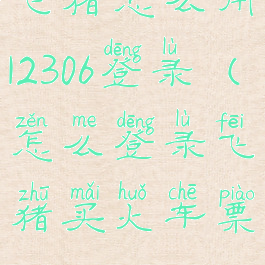 飞猪怎么用
dēng lù
12306登录（
zěn me dēng lù fēi
怎么登录飞
zhū mǎi huǒ chē piào
猪买火车票